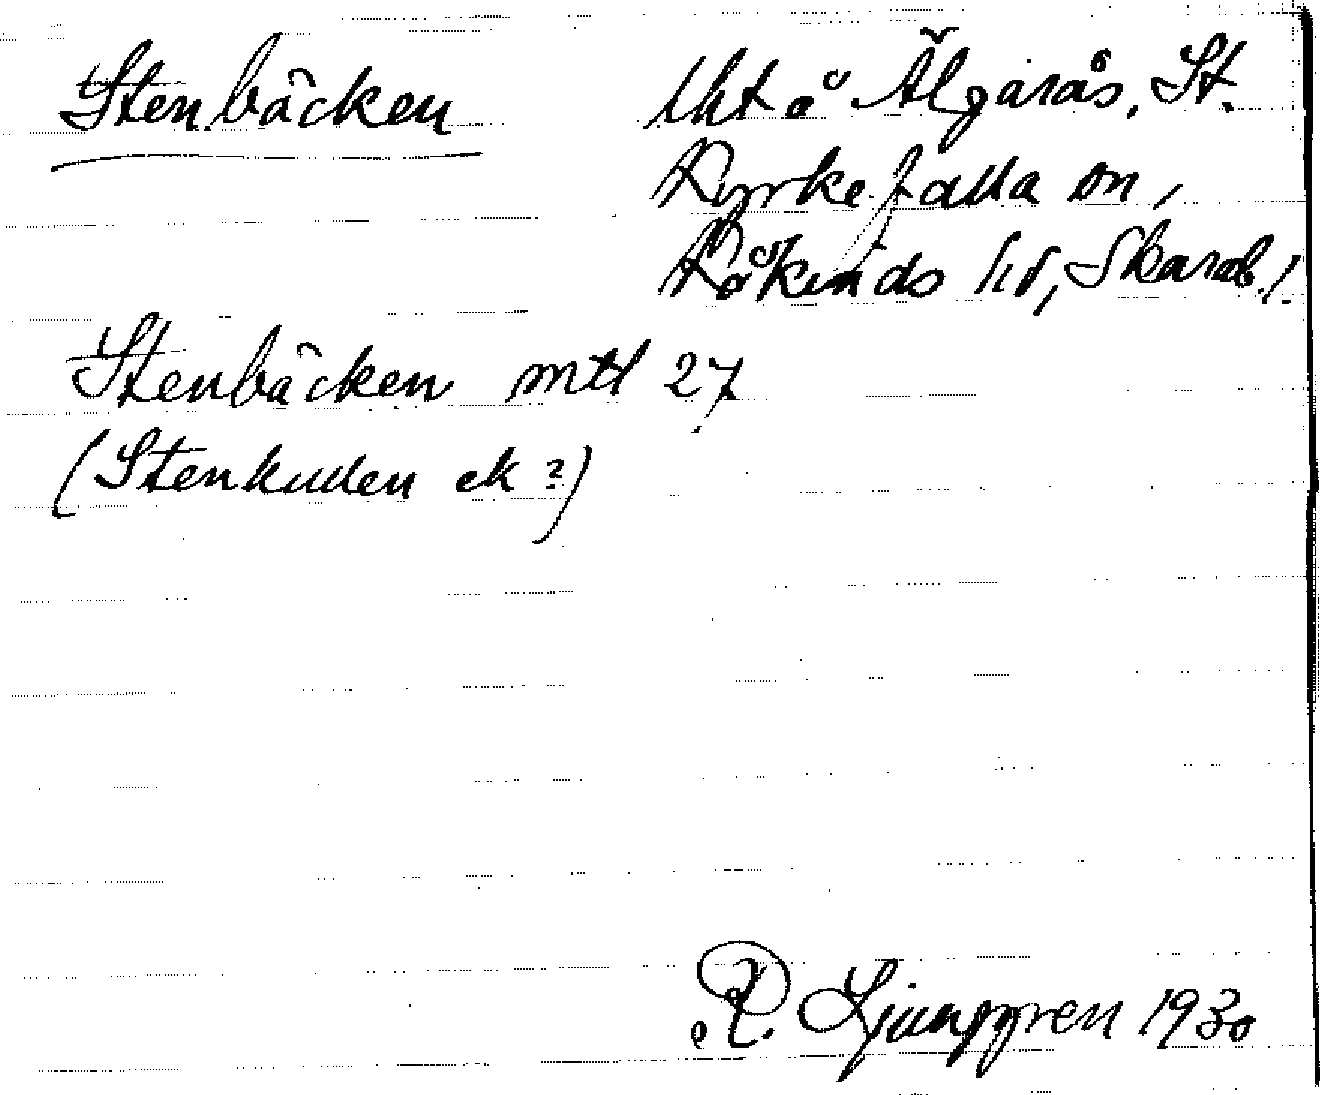 Stenbäcken Uht å Älgarås, St.
Kyrkefalla sn,
Kåkinds hd, Skarab. l.
Stenbäcken mtl 27
(Stenkullen ek?)
R. Ljunggren 1930